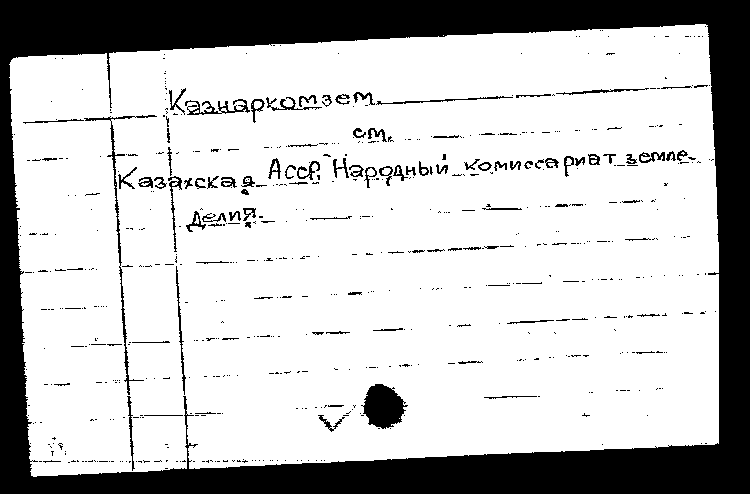 Казнаркомзем.
см.
Казахская АССР. Народный комиссариат земле-
делия.